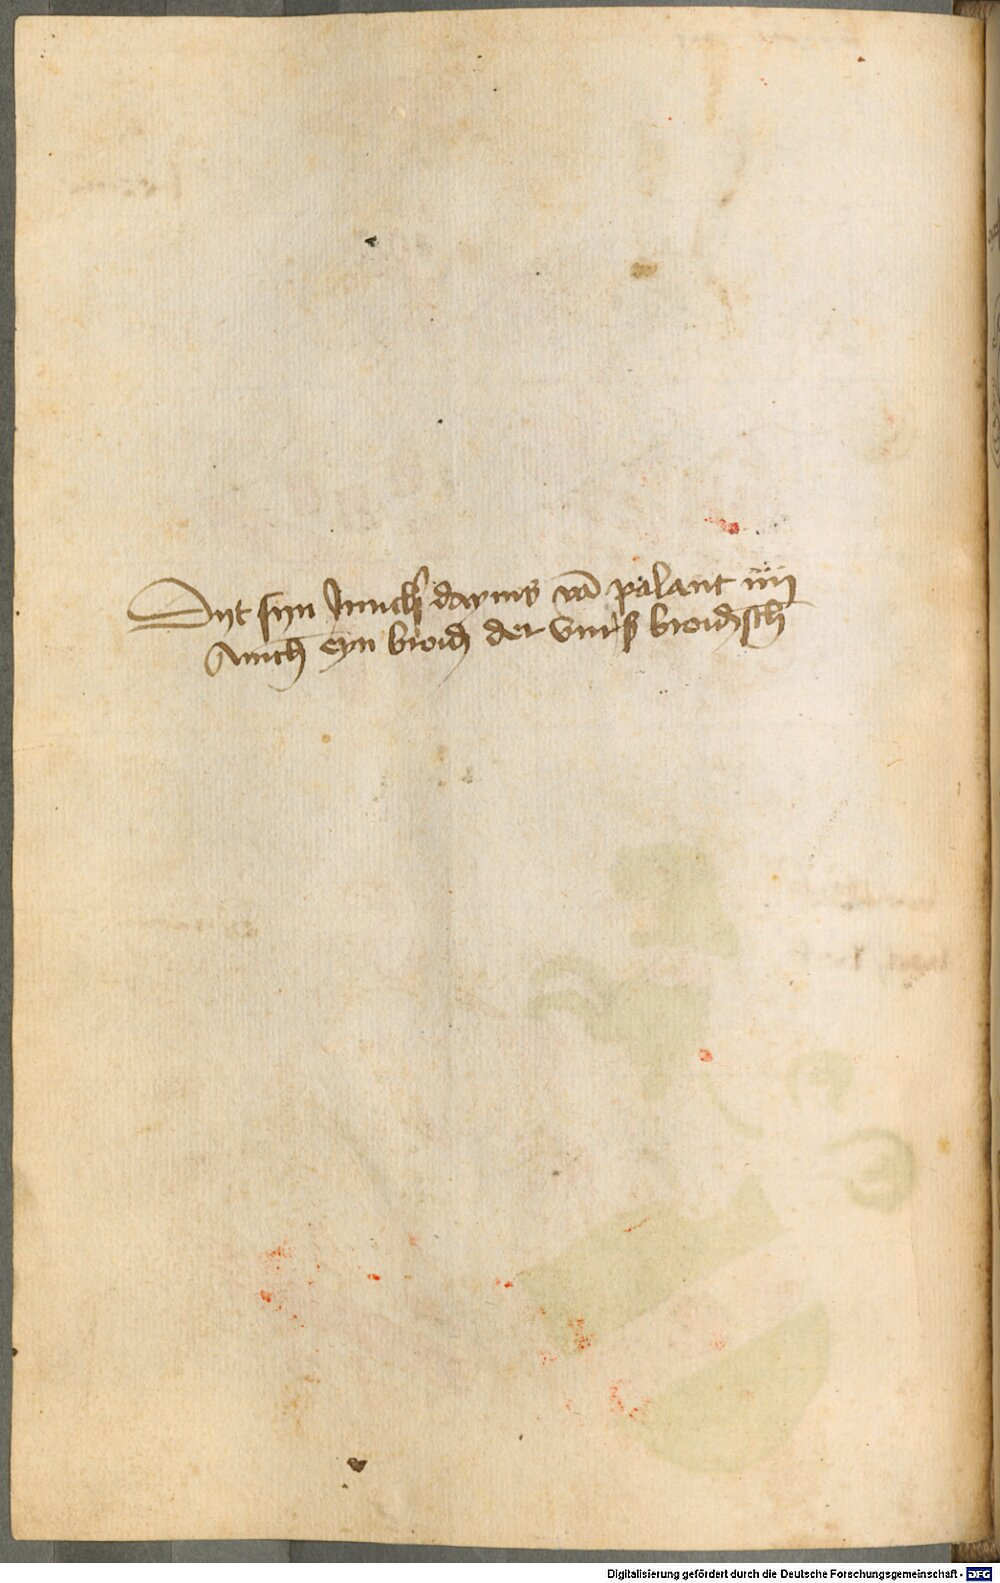 Dyt syn Junckh̄ dayms vā palant iiij
Auch eyn broiđ der vurß broiđsch
Digitalisierung gefördert durch die Deutsche Forschungsgemeinschaft - DFG